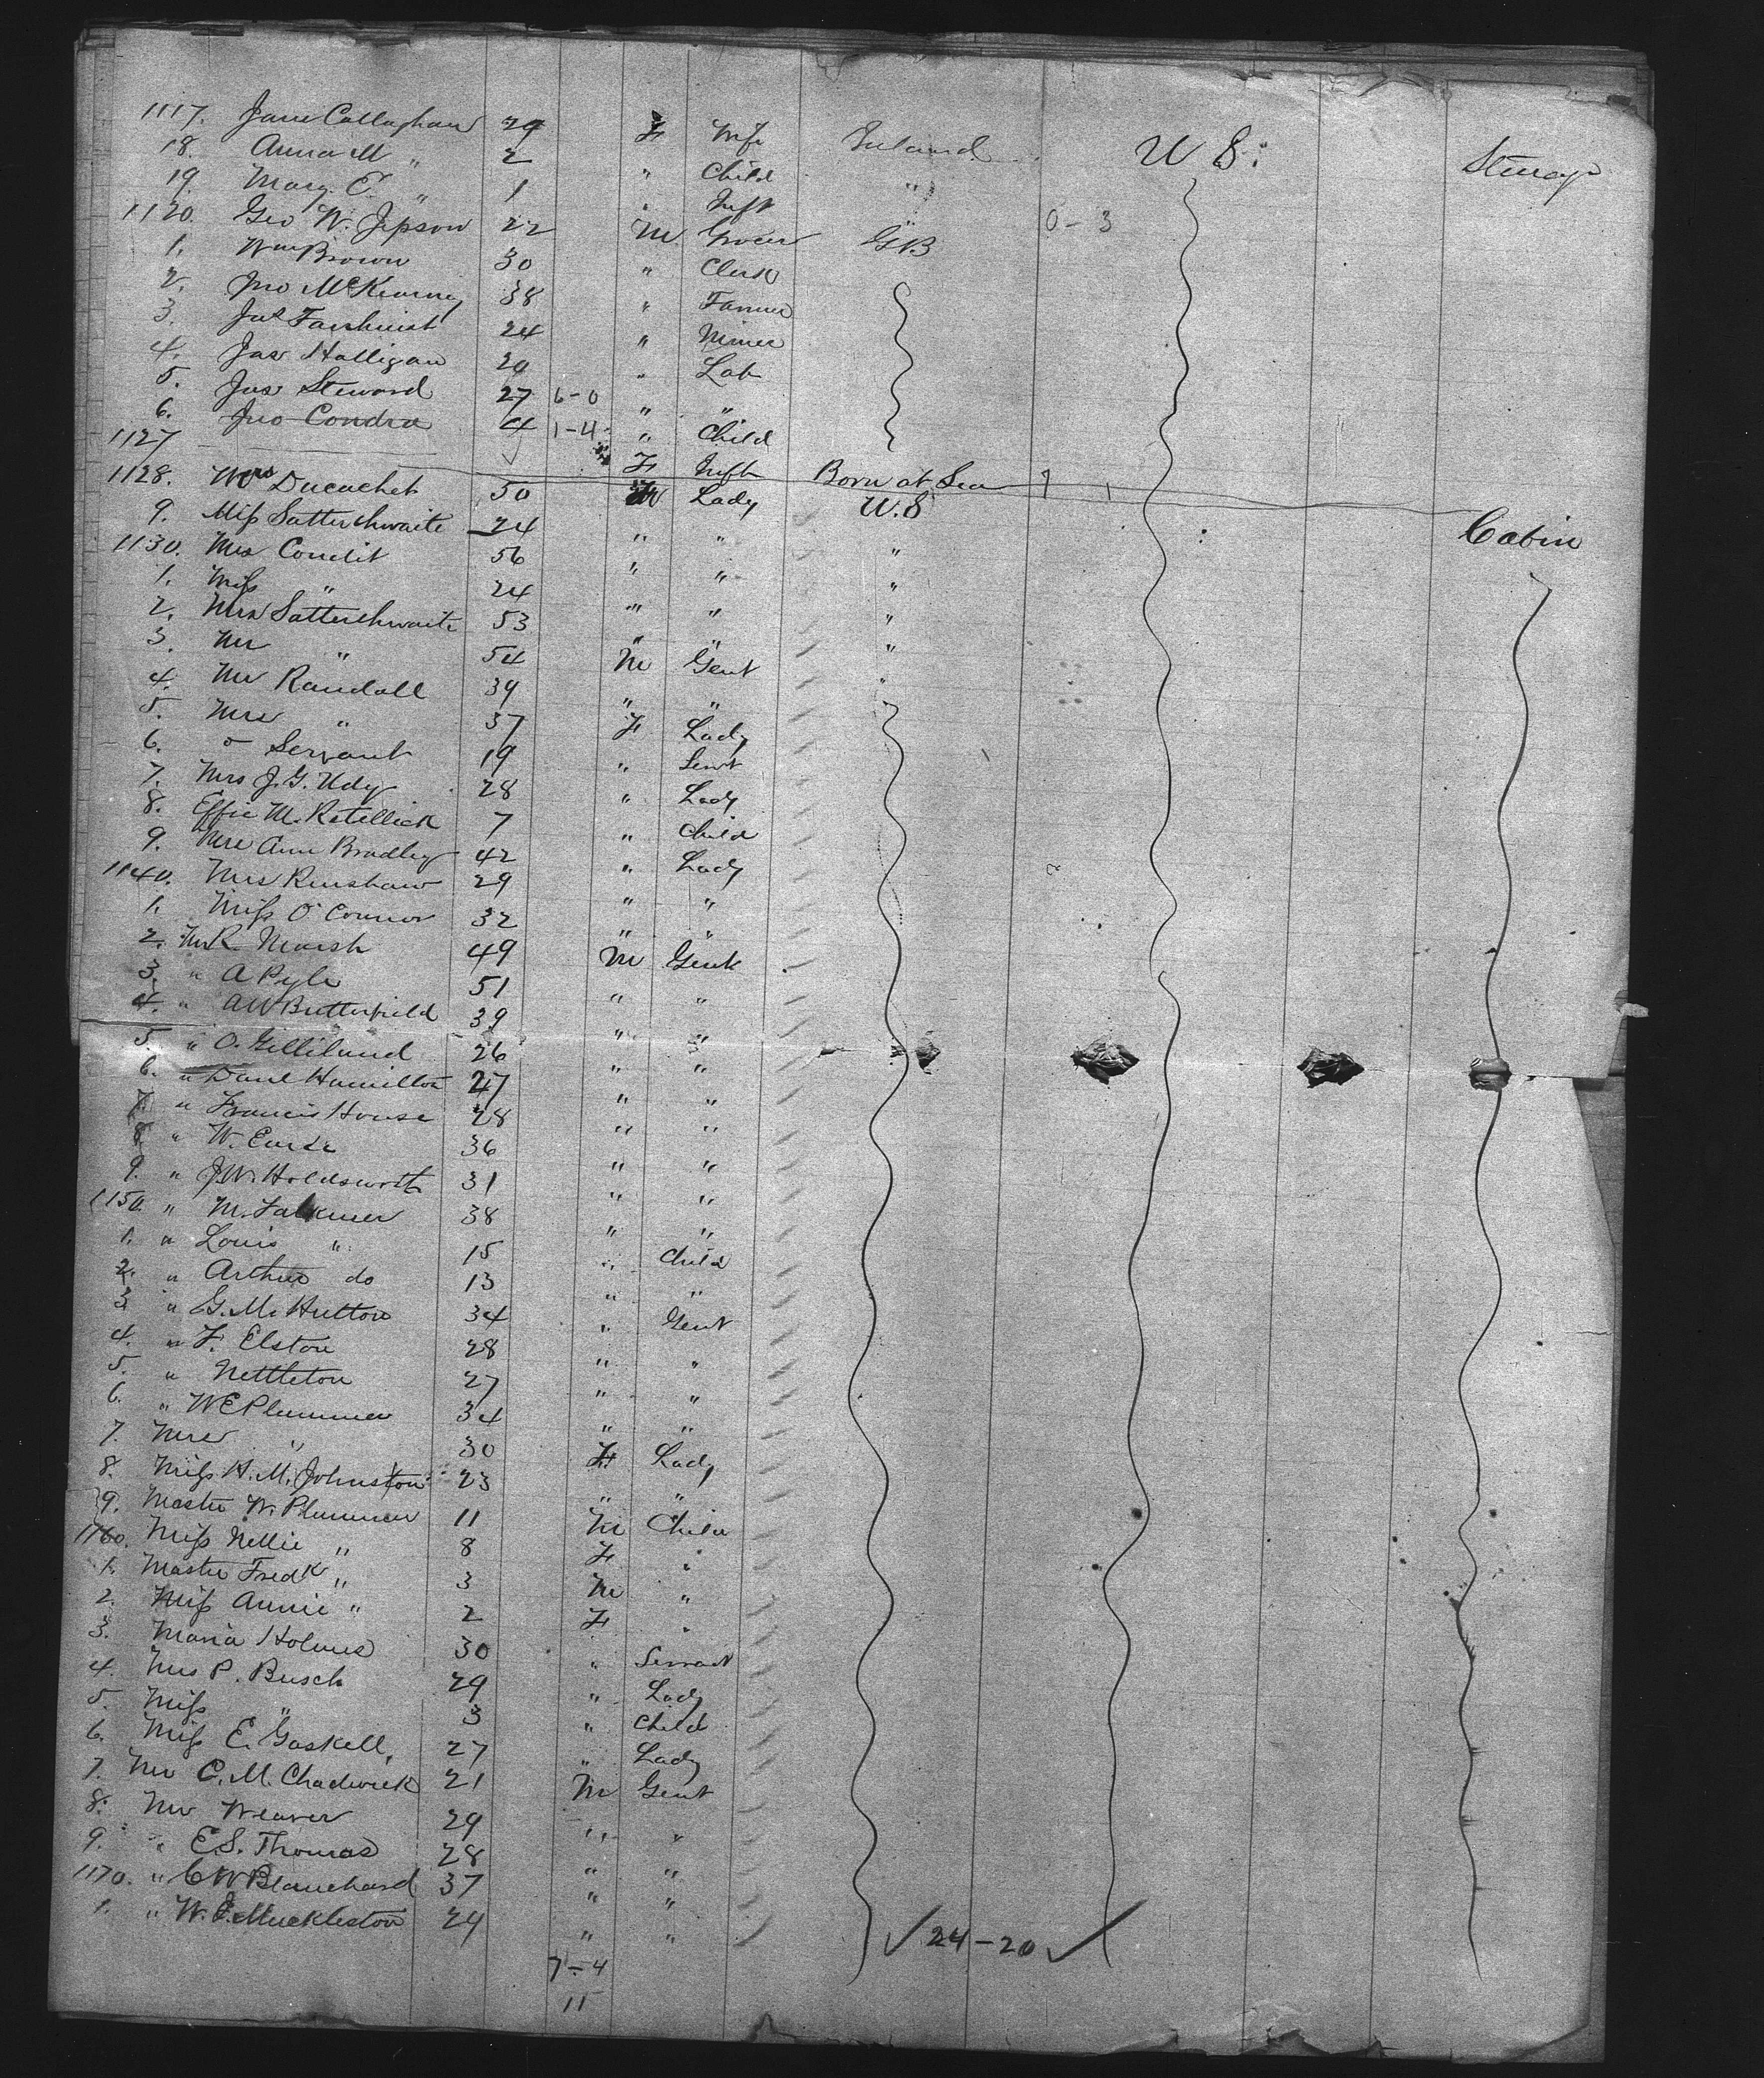 1117. Jane Callaghan 29 F Wife Ireland U S. Steerage
18. Anna M " 2 " Child "
19. Mary E. " 1 " Inft
1120. Geo W. Jepson 22 M Grocer GB 0-3
1. Wm Brown 30 " Clerk
2. Jno McKinney 38 " Farmer
3. Jas Fairhurst 24 " Miner
4. Jas Halligan 20 " Lab
5. Jas Steward 27 6-0 " "
6. Jno Condra 4 1-4 " Child
1127 F Inft Born at Sea
1128. Mrs Ducachet 50 Lady U.S Cabin
9. Miss Satterthwaite 24 " " "
1130. Mrs Condit 56 " " "
1. Miss " 24 " " "
2. Mrs Satterthwaite 53 " " "
3. Mr " 54 M Gent "
4. Mr Randall 39 " "
5. Mrs " 37 F Lady
6. " Servant 19 " Servt
7. Mrs J.G. Udy 28 " Lady
8. Effie M. Retellick 7 " Child
9. Mrs Ann Bradley 42 " Lady
1140. Mrs Renshaw 29 " "
1. Miss O'Connor 32 " "
2. Mr R. Marsh 49 M Gent
3. " A Pyle 51 " "
4. " AW Butterfield 39 " "
5. " O. Gilliland 26 " "
6. " Danl Hamilton 27 " "
7. " Francis House 28 " "
8. " W. 36 " "
9. " J.W. Holdsworth 31 " "
1150. " M. Falkner 38 " "
1. " Louis " 15 " Child
2. " Arthur do 13 " "
3 " G.M. Hutton 34 " Gent
4. " F. Elston 28 " "
5. " Nettleton 27 " "
6. " WE Plummer 34 " "
7. Mrs " 30 F Lady
8. Miss H.M. Johnston 23 " "
9. Master W. Plummer 11 M Child
1160. Miss Nellie " 8 F "
1. Master Fredk " 3 M "
2. Miss Annie " 2 F "
3. Maria Holmes 30 " Servant
4. Mrs P. Busch 29 " Lady
5. Miss " 3 " Child
6. Miss E. Gaskell, 27 " Lady
7. Mr C.M. Chadwick 21 M Gent
8. Mr Weaver 29 " "
9. " E.S. Thomas 28 " "
1170. " C W Blanchard 37 " "
1. " W.J. Muckleston 24 " "
✓ 24-20 ✓
7-4
11